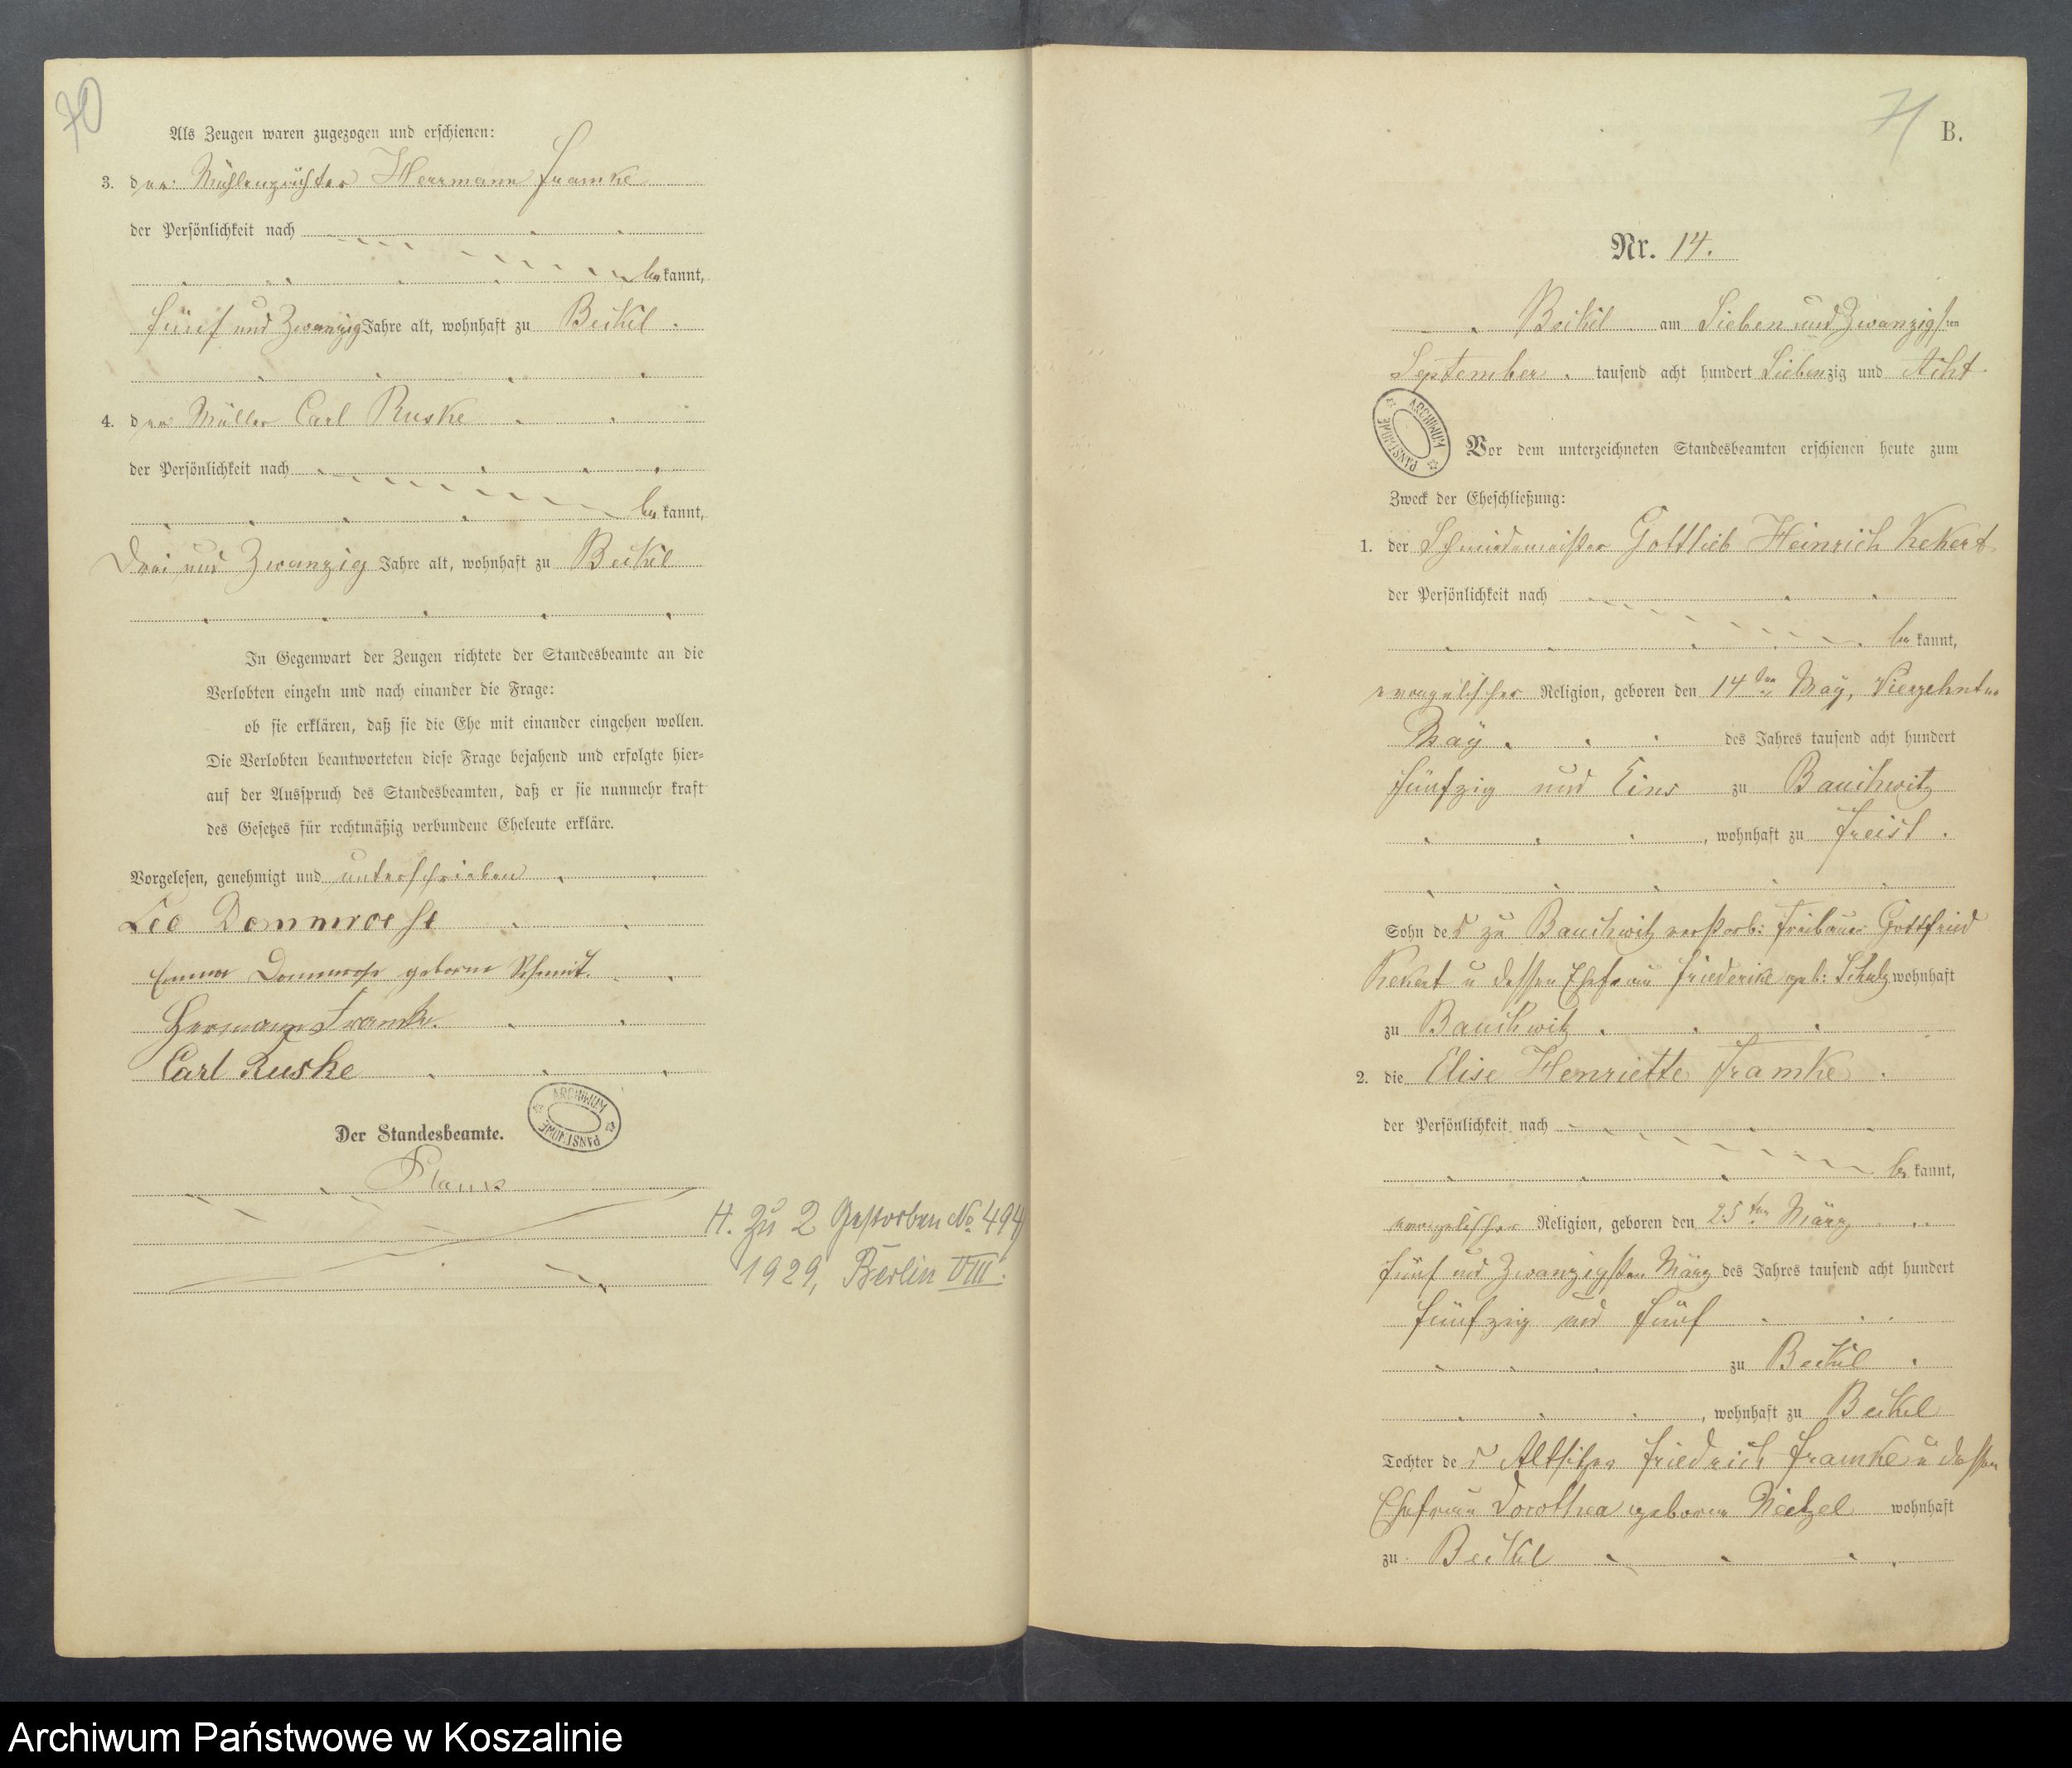 70
Als Zeugen waren zugezogen und erschienen:
3. der Mühlenpächter Herrmann Framke
der Persönlichkeit nach
bekannt,
fünf und Zwanzig Jahre alt, wohnhaft zu Beckel.
4. der Müller Carl Ruske
der Persönlichkeit nach
bekannt,
Drei und Zwanzig Jahre alt, wohnhaft zu Beckel
In Gegenwart der Zeugen richtete der Standesbeamte an die
Verlobten einzeln und nach einander die Frage:
ob sie erklären, daß sie die Ehe mit einander eingehen wollen.
Die Verlobten beantworteten diese Frage bejahend und erfolgte hier-
auf der Ausspruch des Standesbeamten, daß er sie nunmehr kraft
des Gesetzes für rechtmäßig verbundene Eheleute erkläre.
Vorgelesen, genehmigt und unterschrieben
Leo Dommroese
Emma geborne Schmit.
Hermann Framke.
Carl Ruske
Der Standesbeamte.
ARCHIWUM PAŃSTWOWE
H. Zu 2 Gestorben No. 494
1929, Berlin VIII.
71
B.
Nr. 14.
Beckel am Sieben und Zwanzigsten
September tausend acht hundert Siebenzig und Acht
ARCHIWUM PAŃSTWOWE
Vor dem unterzeichneten Standesbeamten erschienen heute zum
Zweck der Eheschließung:
1. der Schmiedemeister Gottlieb Heinrich Kekert
der Persönlichkeit nach
bekannt,
evangelischer Religion, geboren den 14ten May, Vierzehnten
May des Jahres tausend acht hundert
fünfzig und Eins zu Bauchwitz
, wohnhaft zu Freist.
Sohn des zu Bauchwitz verstorb: Freibauer Gottfried
Kekert u dessen Ehefrau Friederike geb: Schulz wohnhaft
zu Bauchwitz
2. die Elise Henriette Framke
der Persönlichkeit nach
bekannt,
evangelischer Religion, geboren den 25ten März
fünf und Zwanzigsten März des Jahres tausend acht hundert
fünfzig und fünf
zu Beckel
, wohnhaft zu Beckel
Tochter des Altsitzer Friedrich Framke u dessen
Ehefrau Dorothea geboren wohnhaft
zu Beckel
Archiwum Państwowe w Koszalinie